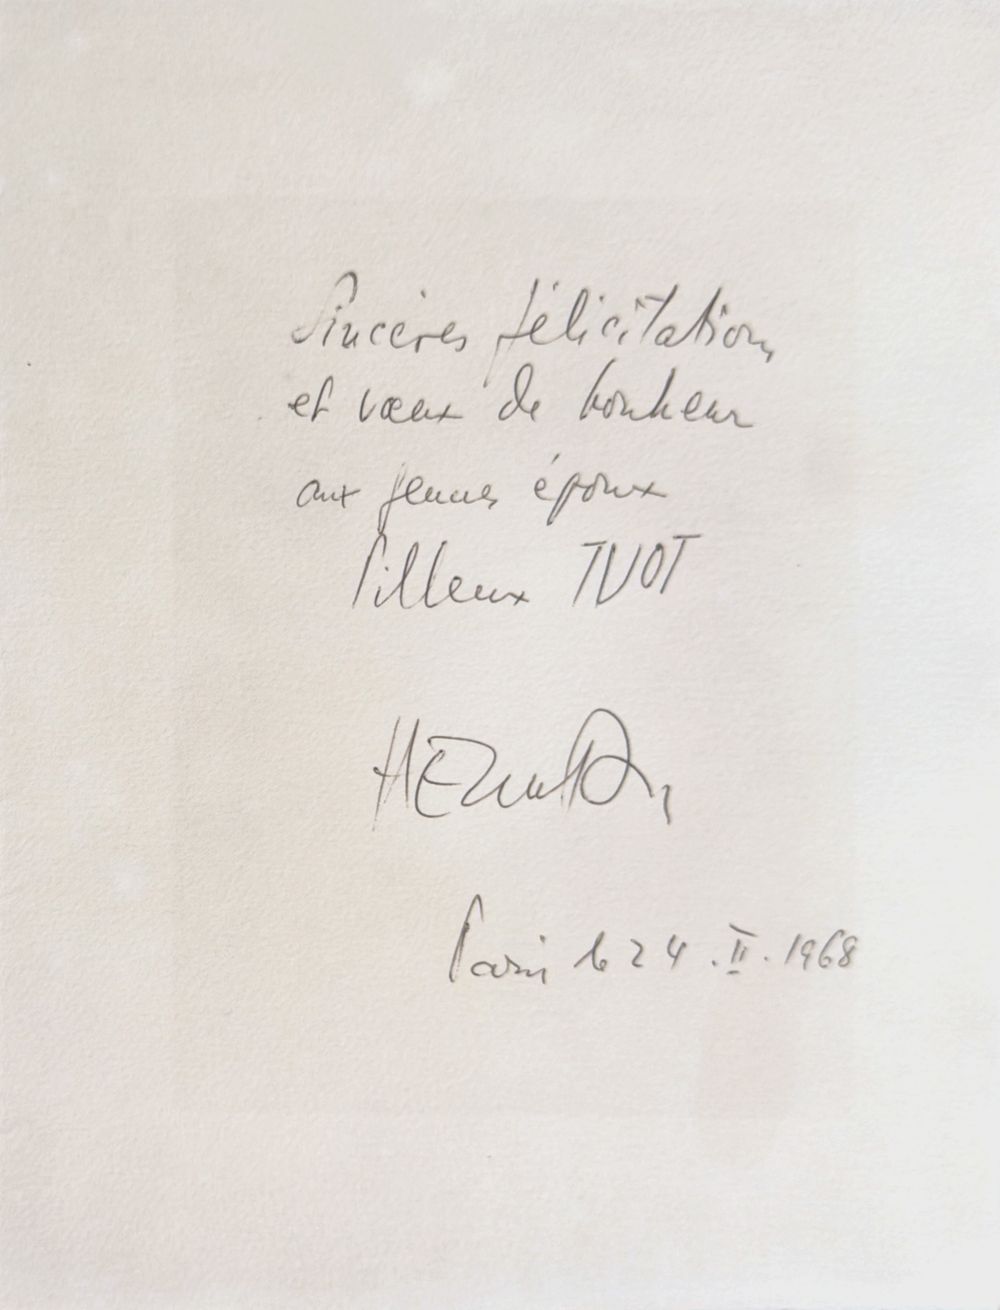 Sincères félicitations
et vœux de bonheur
aux jeunes époux
Pilleux TVOT
Paris le 24.II.1968